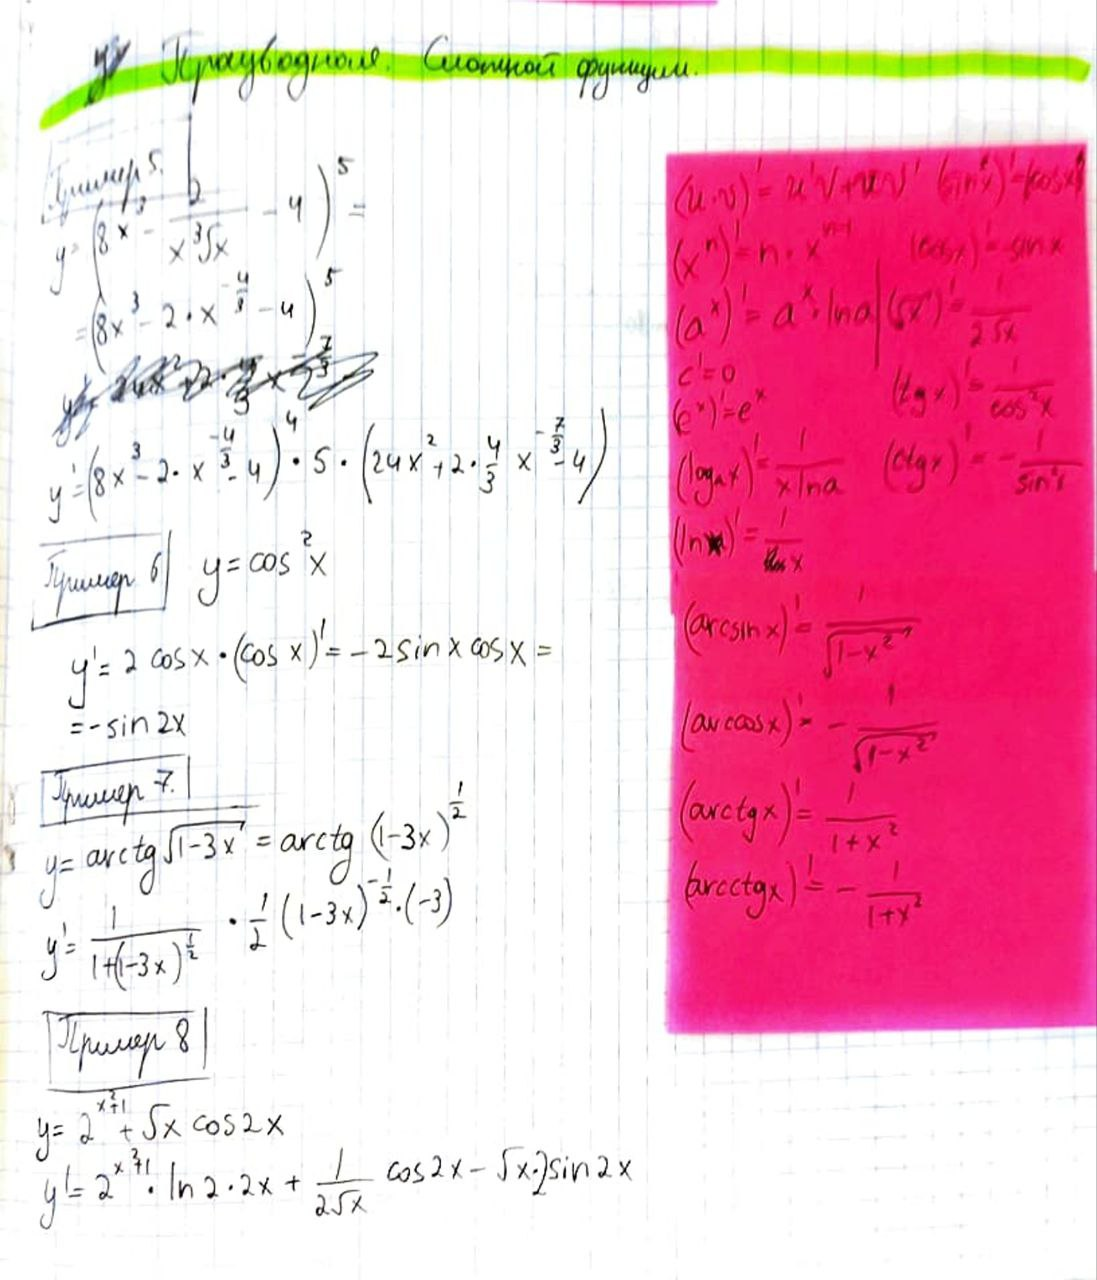 Производная. Сложной функции.
Пример 5.
y = (8x³ - 2/(x³√x) - 4)⁵ =
= (8x³ - 2·x^(-4/3) - 4)⁵
y' = (8x³ - 2·x^(-4/3) - 4)⁴ · 5 · (24x² + 2·4/3 x^(-7/3) - 4)
Пример 6 y = cos²x
y' = 2 cosx·(cos x)' = -2 sin x cos x =
= -sin 2x
Пример 7.
y = arctg√(1-3x) = arctg (1-3x)^(1/2)
y' = 1/(1+(1-3x)^(1/2)) · 1/2 (1-3x)^(-1/2)·(-3)
Пример 8
y = 2^(x²+1) + √x cos2x
y' = 2^(x²+1)· ln2·2x + 1/(2√x) cos2x - √x·2sin2x
(u·v)' = u'v+uv'
(xⁿ)' = n·x^(n-1) (cosx)' = -sinx
(a^x)' = a^x·lna | (√x)' = 1/(2√x)
c' = 0 (tgx)' = 1/cos²x
(e^x)' = e^x
(logₐx)' = 1/(x lna) (ctgx)' = -1/sin²x
(lnx)' = 1/x
(arcsinx)' = 1/√(1-x²)
(arccosx)' = -1/√(1-x²)
(arctgx)' = 1/(1+x²)
(arcctgx)' = -1/(1+x²)